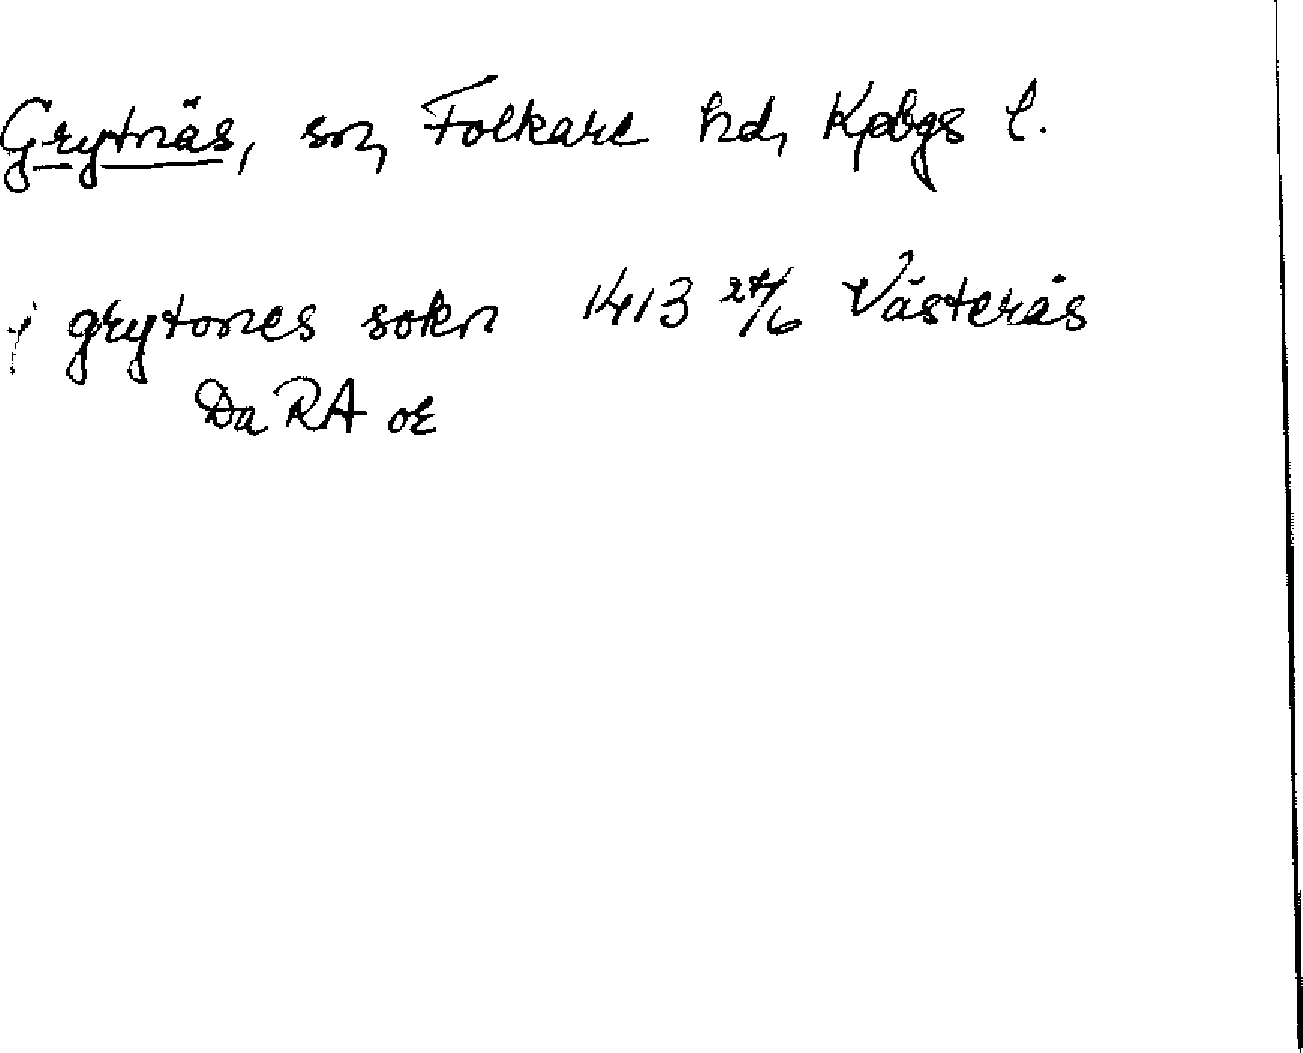 Grytnäs, sn, Folkare hd, Kpbgs l.
i grytones sokn 1413 27/6 Västerås
Da RA or